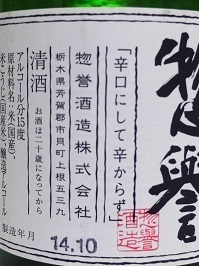 惣誉
「辛口にして辛からず」
惣誉酒造株式会社
栃木県芳賀郡市貝町上根五三九
清酒
お酒は二十歳になってから
アルコール分15度
原材料名・米(国産)、
米こうじ(国産米)、醸造アルコール
製造年月
14.10
惣誉
酒造